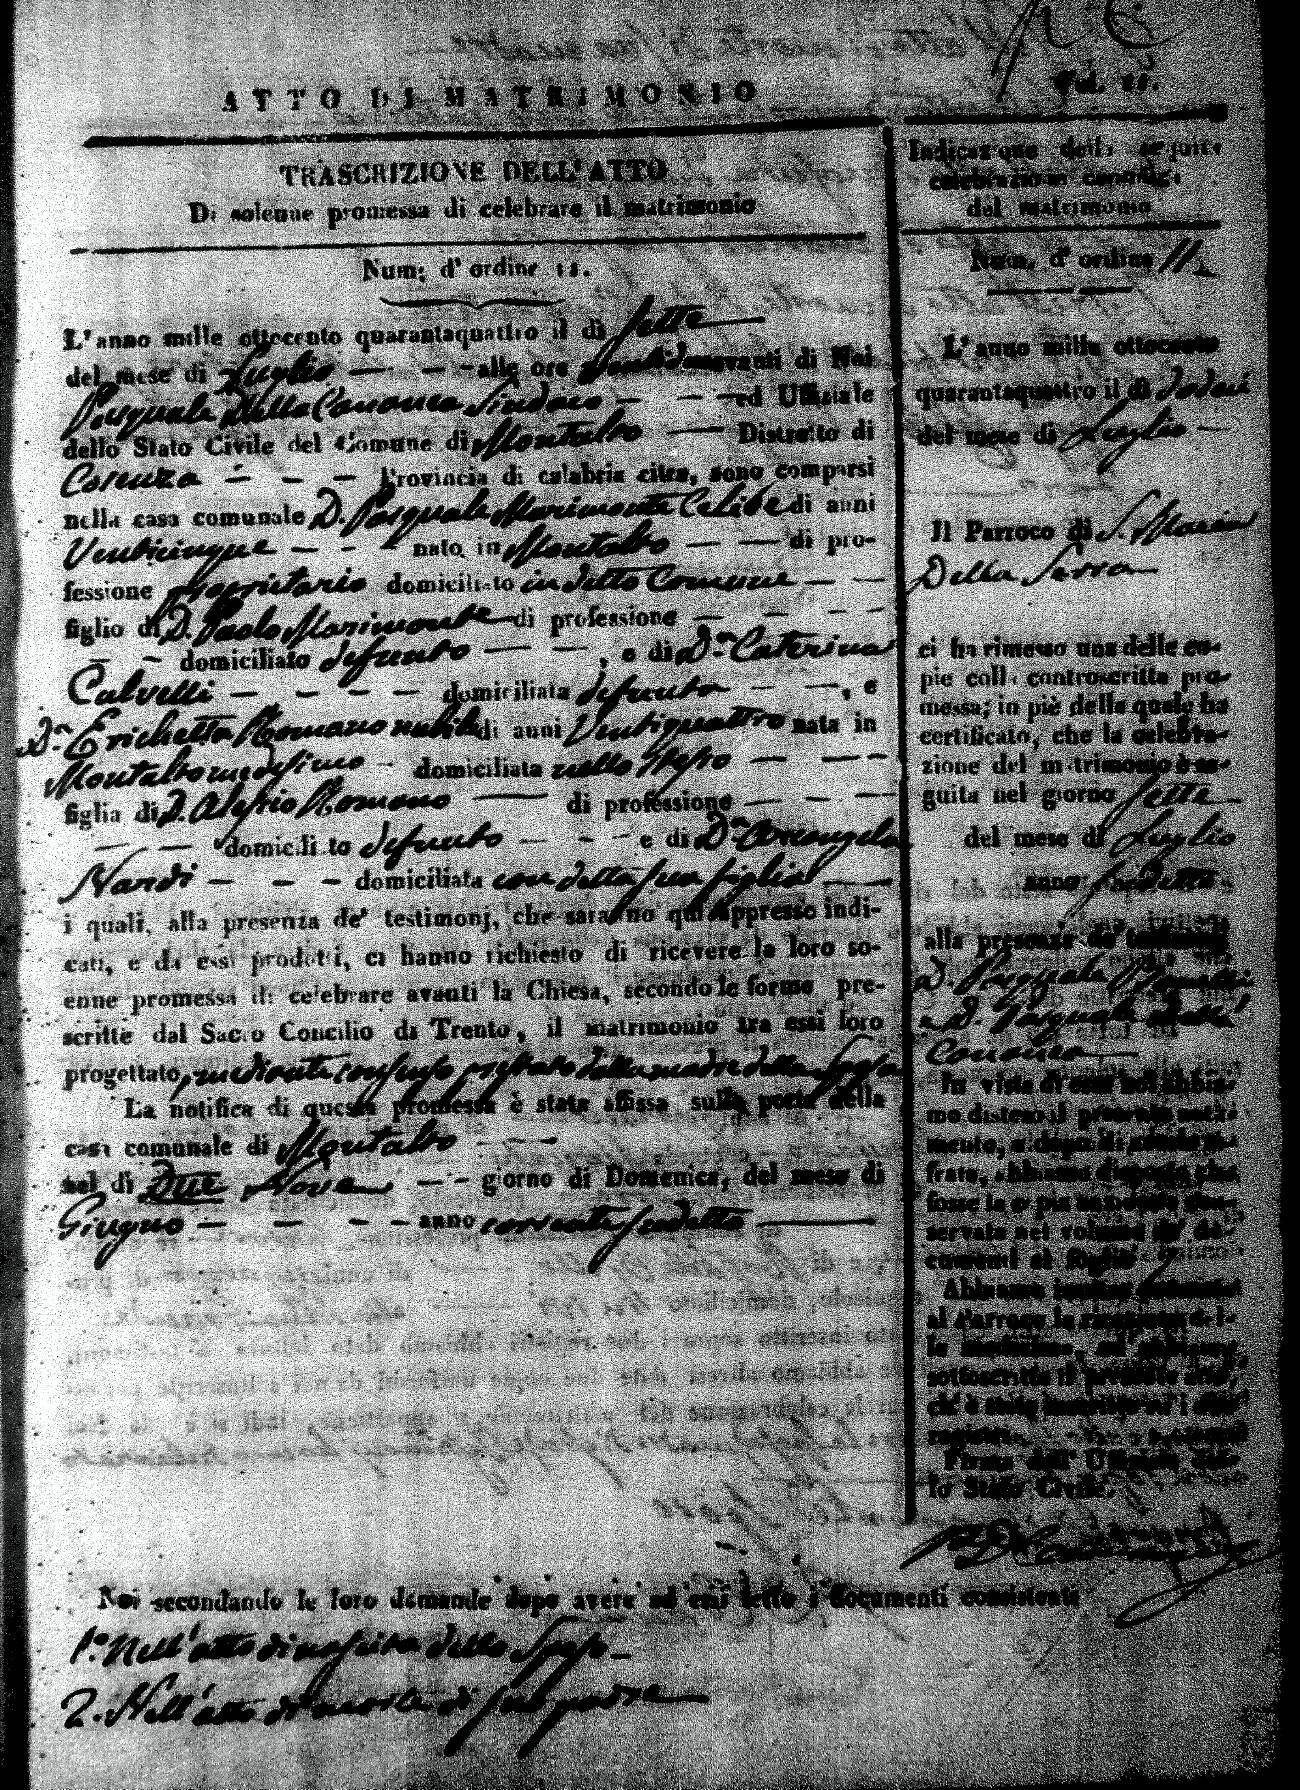 ATTO DI MATRIMONIO
TRASCRIZIONE DELL'ATTO
Di solenne promessa di celebrare il matrimonio
Num: d'ordine 11.
L'anno mille ottocento quarantaquattro il dì Sette
del mese di Luglio alle ore avanti di Noi
Pasquale Della Cananea Sindaco ed Uffiziale
dello Stato Civile del Comune di Montalto Distretto di
Cosenza Provincia di calabria citra, sono comparsi
nella casa comunale D. Pasquale Marimonte Celibe di anni
Venticinque nato in Montalto di pro-
fessione proprietario domiciliato in detto Comune
figlio di D. Paolo Marimonte di professione
domiciliato defunto, e di D.a Caterina
Calvelli domiciliata defunta, e
D.a Erichetta Romano nubile di anni Ventiquattro nata in
Montalto medesimo domiciliata nello stesso
figlia di D. Alessio Romano di professione
domicili to defunto e di D.a Arcangela
Nardi domiciliata con detta sua figlia
i quali, alla presenza de' testimonj, che saranno qui appresso indi-
cati, e da essi prodotti, ci hanno richiesto di ricevere la loro so-
enne promessa di celebrare avanti la Chiesa, secondo le forme pre-
scritte dal Sacro Concilio di Trento, il matrimonio tra essi loro
progettato, mediante consenso prestato dalla madre della Sposa
La notifica di questa promessa è stata affissa sulla porta della
casa comunale di Montalto
nel dì Due Nove giorno di Domenica, del mese di
Giugno anno corrente sudetto
Noi secondando le loro domande dopo avere ad essi letto i documenti consistenti
1.o Nell'atto di nascita dello Sposo
2. Nell'atto di morte di suo padre
Indicazione della seguita
celebrazione canonica
del matrimonio
Num. d'ordine 11.
L'anno mille ottocento
quarantaquattro il dì dodici
del mese di Luglio
Il Parroco di S. Maria
Della Serra
ci ha rimesso una delle co-
pie colla controscritta pro-
messa; in piè della quale ha
certificato, che la celebra-
zione del matrimonio è se-
guita nel giorno Sette
del mese di Luglio
anno sudetto
alla presenza de' testimonj
D. Pasquale
e D. Pasquale Della
Cananea
In vista di essa noi abbia-
mo disteso il presente notà-
mento, e dopo di averla ci-
frata, abbiamo disposto che
fosse la copia anzidetta con-
servata nel volume de' do-
cumenti al foglio
Abbiamo inoltre accusato
al Parroco la ricezione del-
la medesima, ed abbiamo
sottoscritto il presente atto,
ch' è stato inscritto su i due
registri
Firma dell' Uffiziale del-
lo Stato Civile.